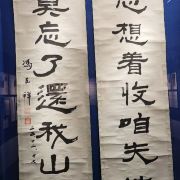 想着收咱失
莫忘了還我山
馮玉祥